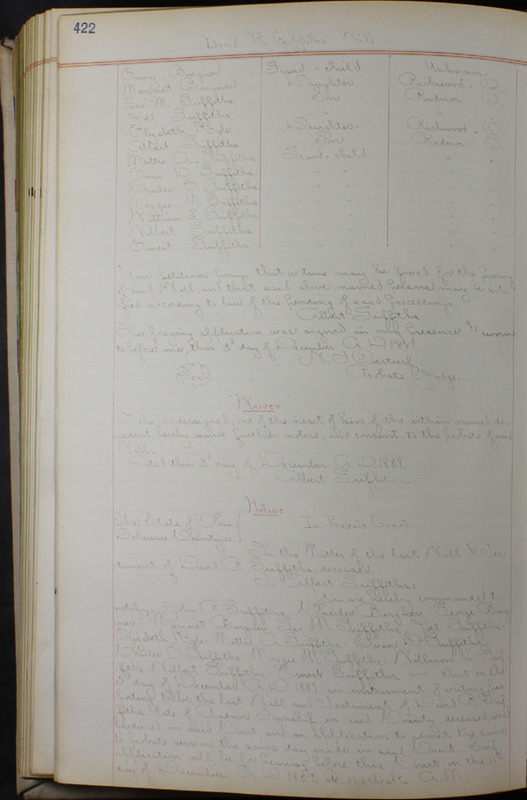 422
David R. Griffiths Will
Grand-child Unknown
Margaret Daughter Richwood, O.
Geo. M. Griffiths Son Radnor, O.
Joel Griffiths
Elizabeth Daughter Richwood, O.
Albert Griffiths Son Radnor, O.
Mattie A. Griffiths Grand-child
Evan D. Griffiths
Charles O. Griffiths
Maggie M. Griffiths
William L. Griffiths
Wilbert Griffiths
Ernest Griffiths
Your petitioner prays that a time may be fixed for the proving
of said Will, and that said above named persons may be noti-
fied according to law of the pending of said proceedings.
Albert Griffiths
The foregoing application was signed in my presence & sworn
to before me, this 3d day of December A.D. 1889.
Seal Probate Judge.
Waiver
I the undersigned, one of the next of kin of the within named de-
cedent hereby waive further notice, and consent to the probate of said
Will.
Dated this 3d day of December A.D. 1889.
Albert Griffiths
Notice.
The State of Ohio In Probate Court.
Delaware County, ss
In the Matter of the Last Will & Tes-
tament of David R. Griffiths, deceased.
To Albert Griffiths:
You are hereby commanded to
notify John R. Griffiths, George
Margaret Geo. M. Griffiths, Joel Griffiths,
Elizabeth Mattie A. Griffiths, Evan D. Griffiths,
Charles O. Griffiths, Maggie M. Griffiths, William L. Grif-
fiths, Wilbert Griffiths, Ernest Griffiths — that on the
3d day of December A.D. 1889 an instrument of writing pur-
porting to be the last Will and Testament of David R. Grif-
fiths late of Radnor Township in said County, deceased, was
produced in said Court and an application to admit the same
to probate was on the same day made in said Court. Said
application will be for hearing before this Court on the 11th
day of December A.D. 1889, at o'clock A.M.